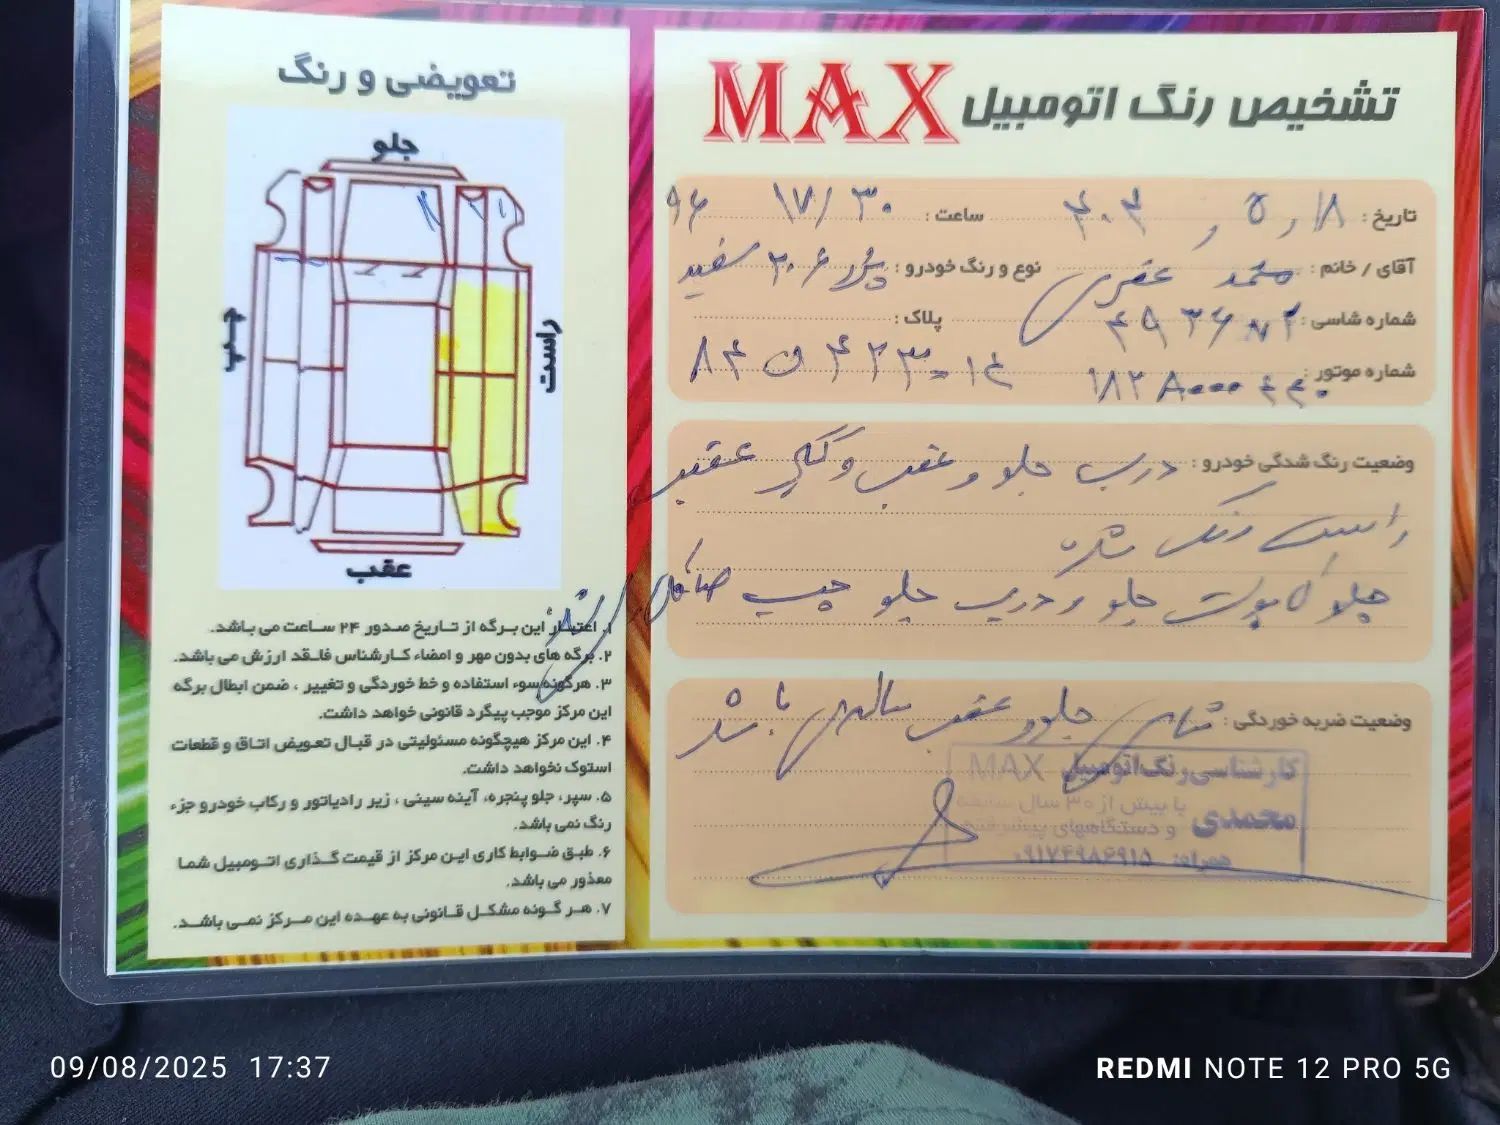 تشخیص رنگ اتومبیل MAX
تاریخ : ۱۸ ، ۵ ، ۴۰۴ ساعت : ۱۷/۳۰ ۹۶
آقای / خانم : محمد نوع و رنگ خودرو : پژو ۲۰۶ سفید
شماره شاسی : پلاک :
شماره موتور :
وضعیت رنگ شدگی خودرو : درب جلو و عقب و گلگیر عقب
راست رنگ شده
جلو درب جلو چپ
وضعیت ضربه خوردگی : جلو و عقب سالم می باشد
کارشناسی رنگ اتومبیل MAX
محمدی
با بیش از ۳۰ سال سابقه
و دستگاههای پیشرفته
همراه:
تعویضی و رنگ
جلو
چپ
راست
عقب
۱. اعتبار این برگه از تاریخ صدور ۲۴ ساعت می باشد.
۲. برگه های بدون مهر و امضاء کارشناس فاقد ارزش می باشد.
۳. هرگونه سوء استفاده و خط خوردگی و تغییر ، ضمن ابطال برگه
این مرکز موجب پیگرد قانونی خواهد داشت.
۴. این مرکز هیچگونه مسئولیتی در قبال تعویض اتاق و قطعات
استوک نخواهد داشت.
۵. سپر، جلو پنجره، آینه سینی ، زیر رادیاتور و رکاب خودرو جزء
رنگ نمی باشد.
۶. طبق ضوابط کاری این مرکز از قیمت گذاری اتومبیل شما
معذور می باشد.
۷. هر گونه مشکل قانونی به عهده این مرکز نمی باشد.
09/08/2025 17:37
REDMI NOTE 12 PRO 5G